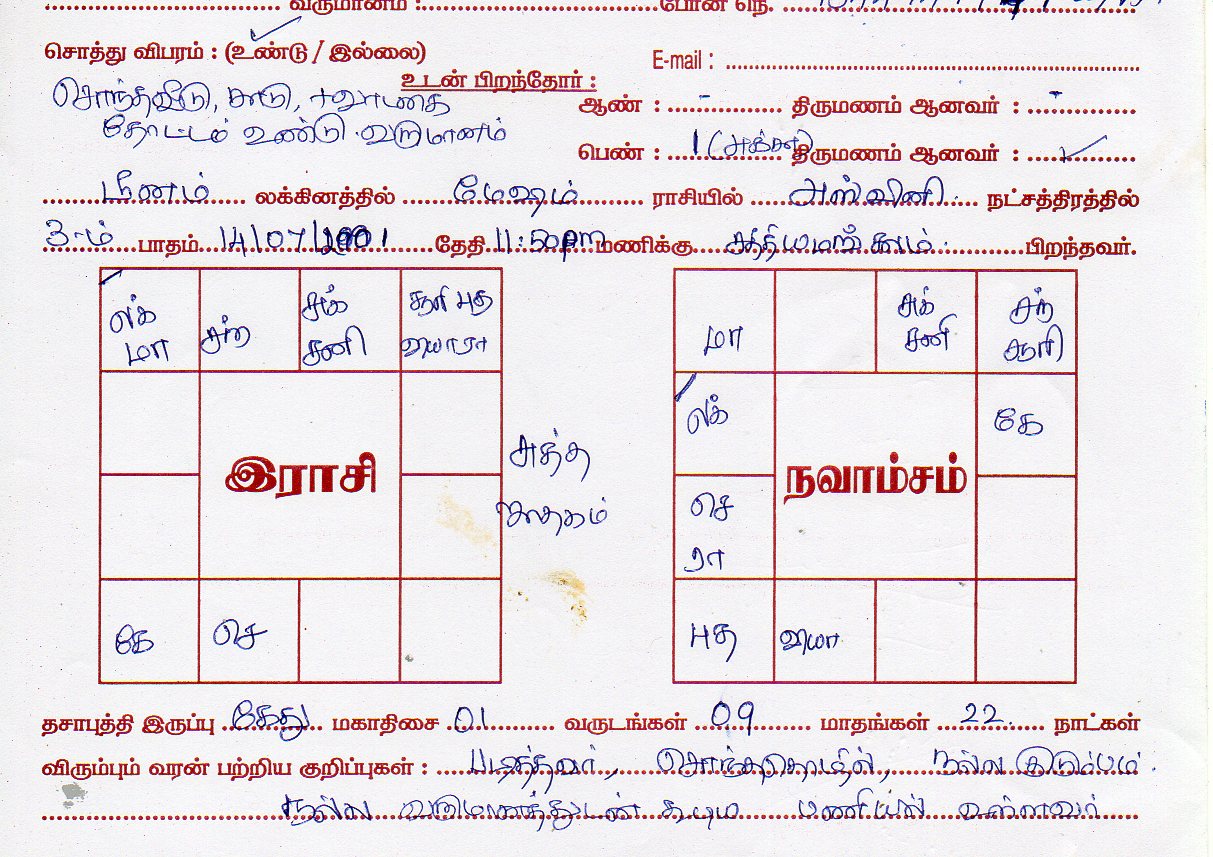 வருமானம் : போன் நெ.
சொத்து விபரம் : (உண்டு / இல்லை)
E-mail :
உடன் பிறந்தோர் :
சொந்தவீடு, காடு,
ஆண் : - திருமணம் ஆனவர் : -
தோட்டம் உண்டு. வருமானம்
பெண் : 1 (அக்கா) திருமணம் ஆனவர் : ✓
மீனம் லக்கினத்தில் மேஷம் ராசியில் அஸ்வினி நட்சத்திரத்தில்
3-ம் பாதம் 14/07/2001 தேதி 11:50pm மணிக்கு சத்தியமங்கலம் பிறந்தவர்.
லக் சந் சுக் சூரி புத
மா சனி வியா ரா
சுக் சந்
மா சனி சூரி
லக் கே
இராசி
சுத்த
ஜாதகம்
நவாம்சம்
செ
ரா
கே செ
புத வியா
தசாபுத்தி இருப்பு கேது மகாதிசை 01 வருடங்கள் 09 மாதங்கள் 22 நாட்கள்
விரும்பும் வரன் பற்றிய குறிப்புகள் : படித்தவர், சொந்ததொழில், நல்ல குடும்பம்
நல்ல வருமானத்துடன் கூடிய பணியில் உள்ளவர்